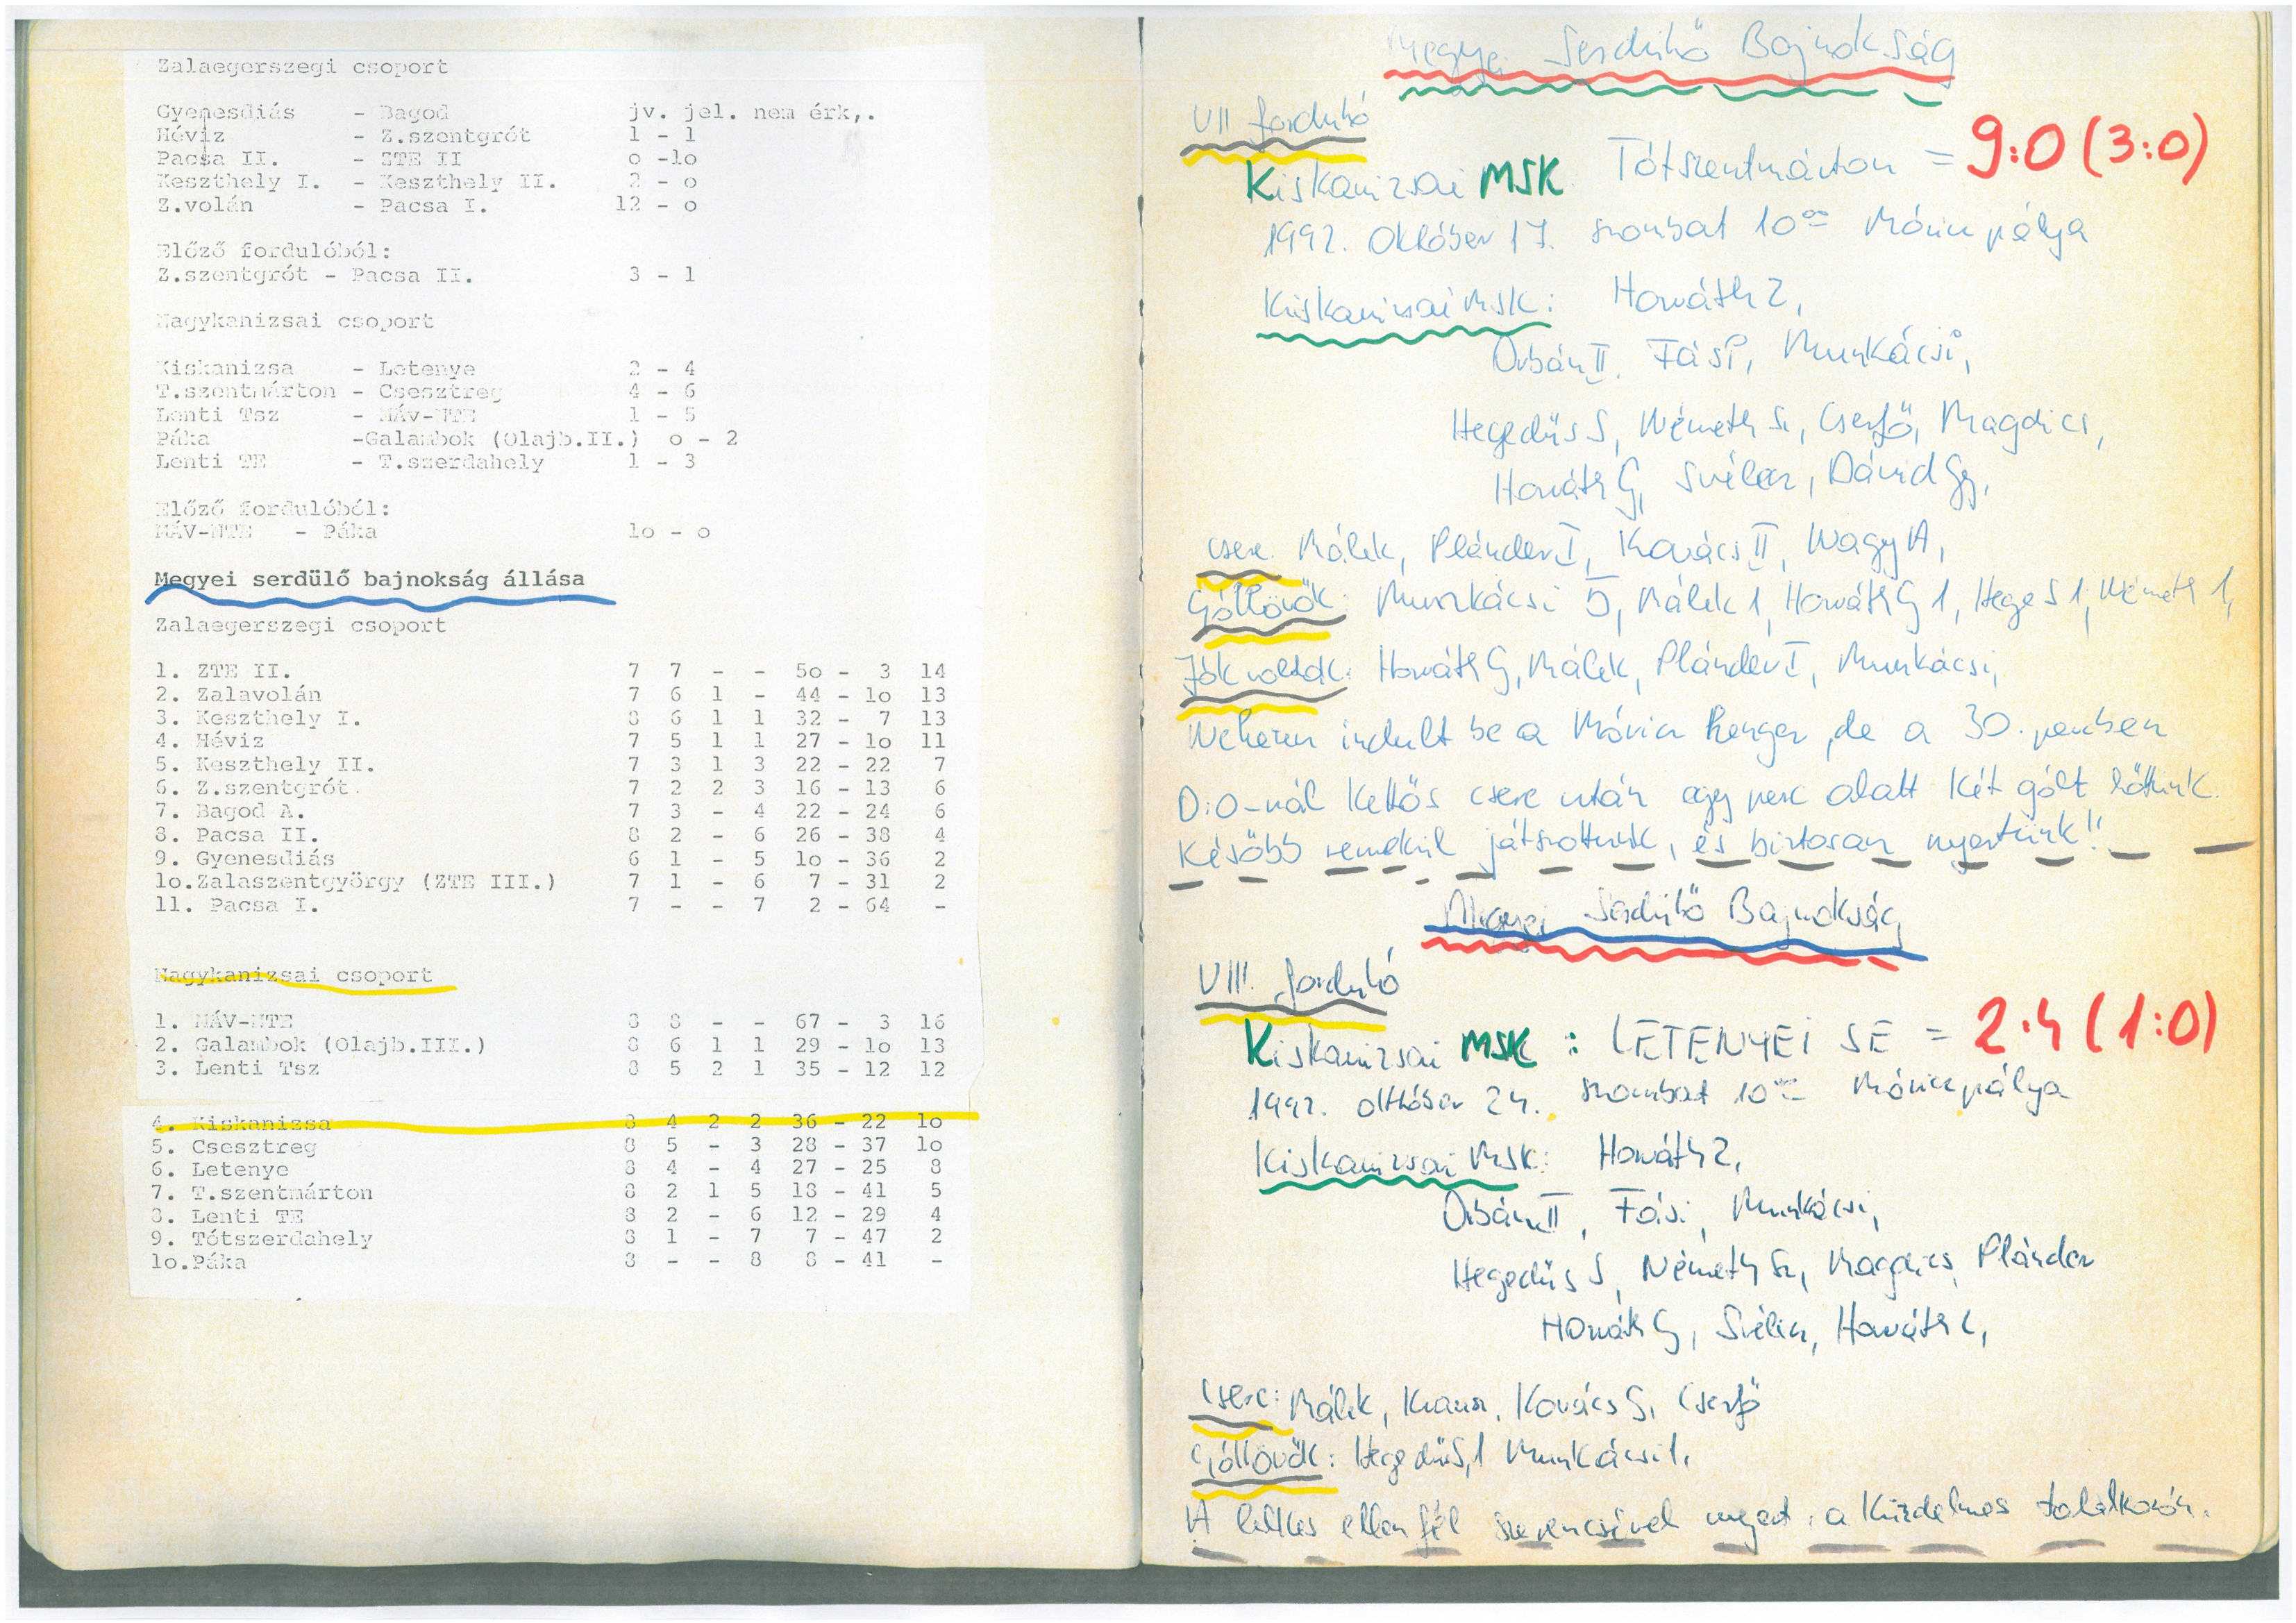 Zalaegerszegi csoport
Gyenesdiás - Bagod jv. jel. nem érk,.
Héviz - Z.szentgrót 1 - 1
Pacsa II. - ZTE II o -lo
Keszthely I. - Keszthely II. 2 - o
Z.volán - Pacsa I. 12 - o
Előző fordulóból:
Z.szentgrót - Pacsa II. 3 - 1
Nagykanizsai csoport
Kiskanizsa - Letenye 2 - 4
T.szentmárton - Csesztreg 4 - 6
Lenti Tsz - MÁv-NTE 1 - 5
Páka -Galambok (Olajb.II.) o - 2
Lenti TE - T.szerdahely 1 - 3
Előző fordulóból:
MÁV-NTE - Páka lo - o
Megyei serdülő bajnokság állása
Zalaegerszegi csoport
1. ZTE II. 7 7 - - 5o - 3 14
2. Zalavolán 7 6 1 - 44 - lo 13
3. Keszthely I. 8 6 1 1 32 - 7 13
4. Héviz 7 5 1 1 27 - lo 11
5. Keszthely II. 7 3 1 3 22 - 22 7
6. Z.szentgrót. 7 2 2 3 16 - 13 6
7. Bagod A. 7 3 - 4 22 - 24 6
8. Pacsa II. 8 2 - 6 26 - 38 4
9. Gyenesdiás 6 1 - 5 lo - 36 2
lo.Zalaszentgyörgy (ZTE III.) 7 1 - 6 7 - 31 2
11. Pacsa I. 7 - - 7 2 - 64 -
Nagykanizsai csoport
1. MÁV-NTE 8 8 - - 67 - 3 16
2. Galambok (Olajb.III.) 8 6 1 1 29 - lo 13
3. Lenti Tsz 8 5 2 1 35 - 12 12
4. Kiskanizsa 8 4 2 2 36 - 22 lo
5. Csesztreg 8 5 - 3 28 - 37 lo
6. Letenye 8 4 - 4 27 - 25 8
7. T.szentmárton 8 2 1 5 18 - 41 5
8. Lenti TE 8 2 - 6 12 - 29 4
9. Tótszerdahely 8 1 - 7 7 - 47 2
lo.Páka 8 - - 8 8 - 41 -
Megyei Serdülő Bajnokság
VII forduló
Kiskanizsai MSK Tótszentmárton = 9:0 (3:0)
1992. Október 17. szombat 10°° Móricz pálya
Kiskanizsai MSK: Horváth Z,
Orbán II. Fási, Munkácsi,
Hegedüs S, Németh Sz, Cserfő, Magdics,
Horváth G, Svélecz, Dávid Gy,
csere: Málek, Plánder I, Kovács II, Nagy A,
Góllövők: Munkácsi 5, Málek 1, Horváth G 1, Hege S 1, Németh 1,
Jók voltak: Horváth G, Málek, Plánder I, Munkácsi,
Nehezen indult be a Móricz henger, de a 30. percben
0:0-nál kettős csere után egy perc alatt két gólt lőttünk.
Később remekül játszottunk, és biztosan nyertünk!!
Megyei Serdülő Bajnokság
VIII. forduló
Kiskanizsai MSK : LETENYEI SE = 2:4 (1:0)
1992. október 24. szombat 10°° Móricz pálya
Kiskanizsai MSK: Horváth Z,
Orbán II, Fási, Munkácsi,
Hegedüs S, Németh Sz, Magdics, Plánder
Horváth G, Svélecz, Horváth L,
Csere: Málek, Kovács G, Cserfő
Góllövők: Hegedüs S,1 Munkácsi 1,
A lelkes ellenfél szerencsével nyert, a küzdelmes találkozón.